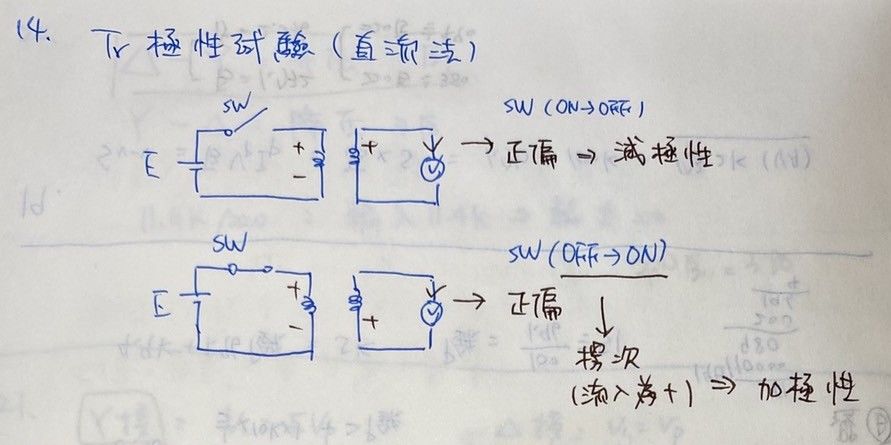 14. Tr 極性試驗(直流法)
SW
E
+
-
+
V
→ 正偏 → 減極性
SW (ON→OFF)
SW
E
+
-
+
V
→ 正偏
SW (OFF→ON)
↓
楞次
(流入為+) ⇒ 加極性